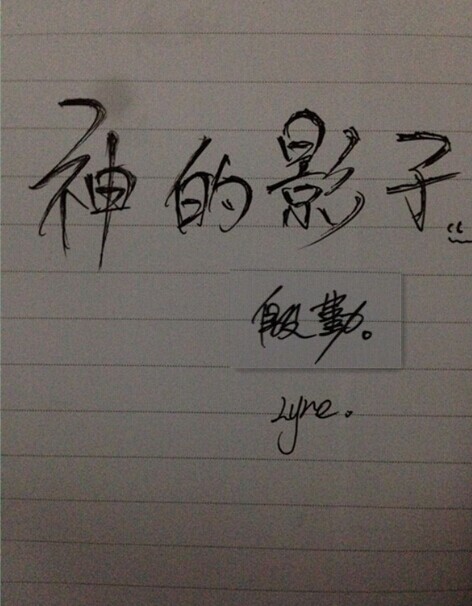 神的影子
殷勤。
Lyre.